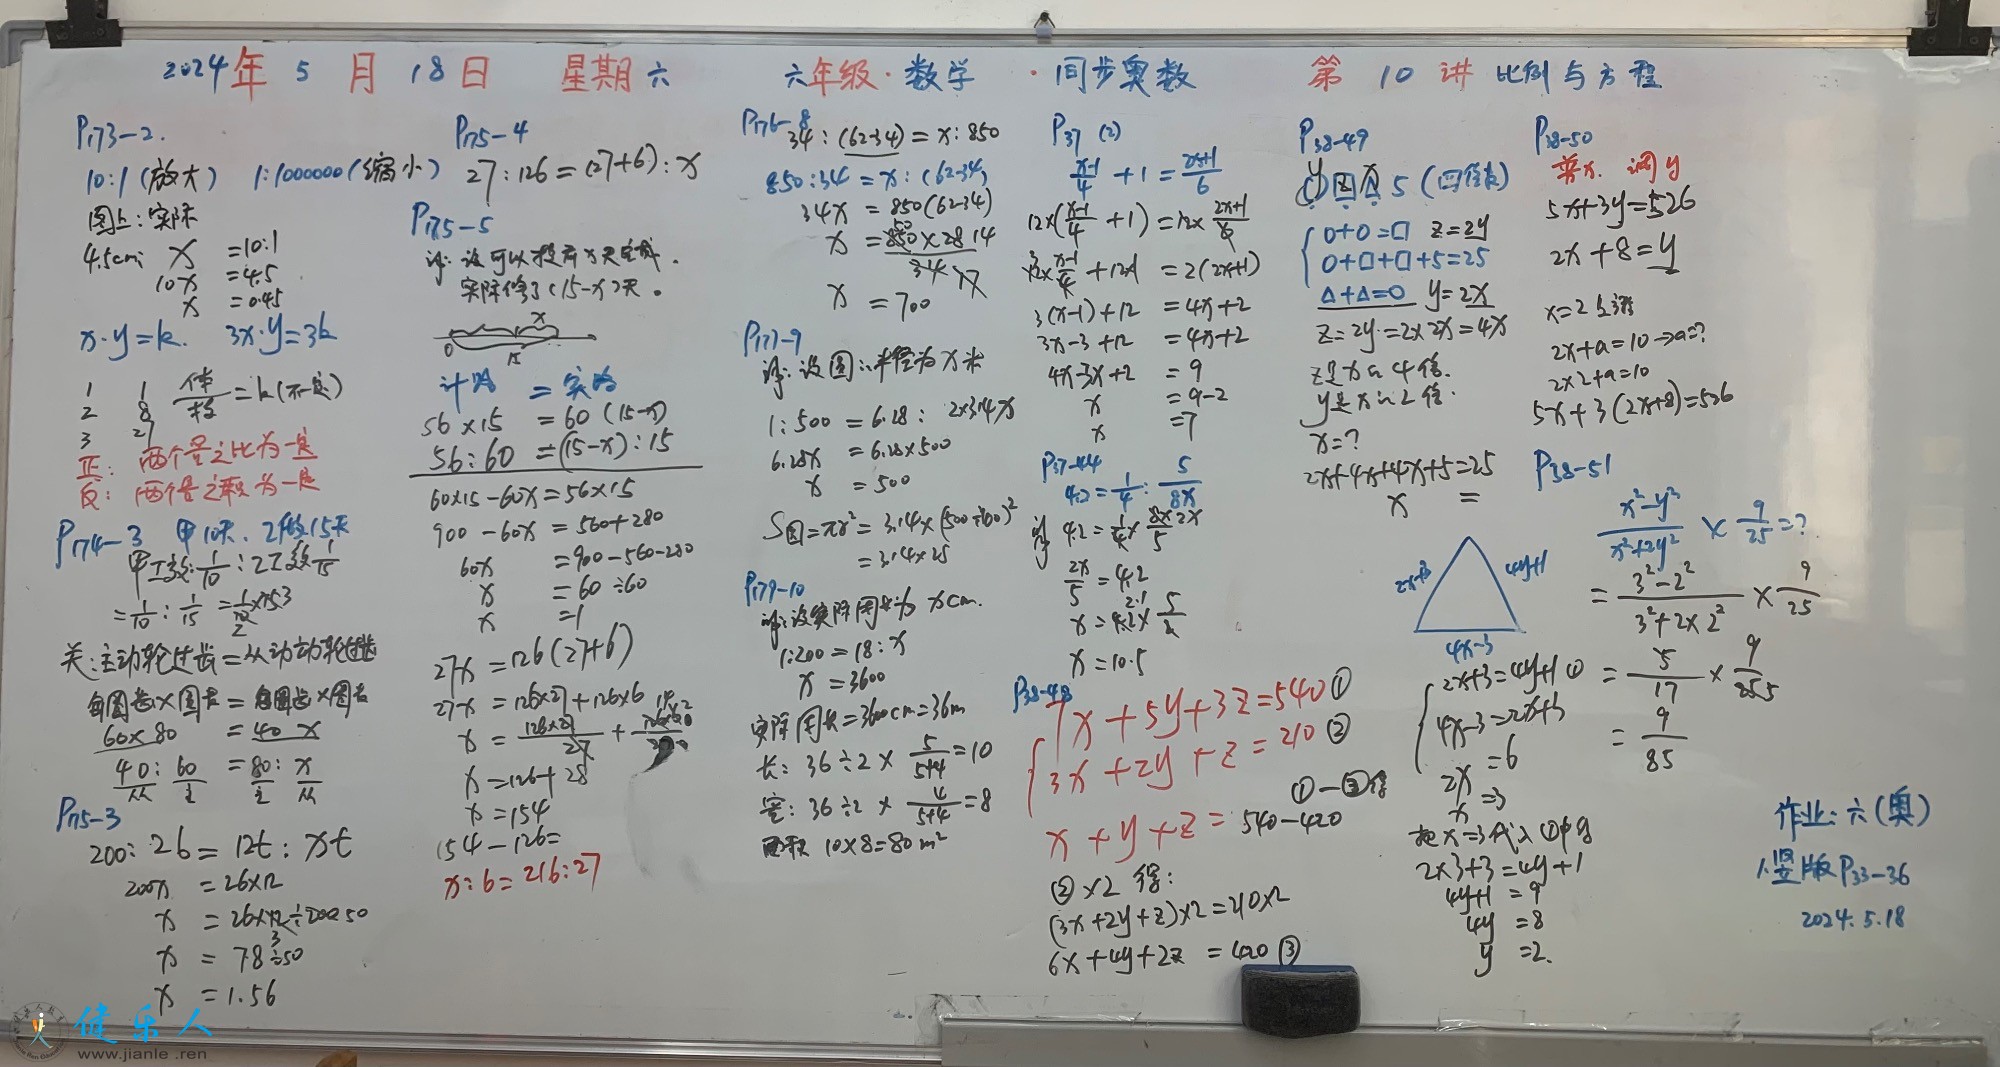 2024年5月18日 星期六 六年级·数学·同步奥数 第10讲 比例与方程
P173-2.
10:1(放大) 1:1000000(缩小)
图上:实际
4.5cm: x =10:1
10x =4.5
x =0.45
x·y=k. 3x·y=3k
1 1
2 8
3 27
体/棱=k(不定)
正: 两个量之比为一定
反: 两个量之积为一定
P174-3 甲10天. 乙做15天
甲工效:1/10:乙工效1/15
=1/10:1/15
关:主动轮过齿=从动轮过齿
每圈齿×圈数=每圈齿×圈数
60×80 =40 x
40:60 =80:x
P175-3
200:26=12t:xt
200x =26×12
x =26×12÷200
x = 78÷50
x =1.56
P175-4
27:126=(27+6):x
P175-5
解:设可以提前x天完成.
实际修了(15-x)天.
x
0 15
计划 = 实际
56×15 =60(15-x)
56:60 =(15-x):15
60×15-60x=56×15
900-60x=560+280
60x =900-560-280
x =60÷60
x =1
27x=126(27+6)
27x=126×27+126×6
x=126×27/27+
x=126+28
x=154
154-126=
x:6=216:27
P176-8
34:(62-34)=x:850
850:34=x:(62-34)
34x =850(62-34)
x =850×28 14/34 17
x =700
P177-9
解:设圆:半径为x米
1:500=6.28:2×3.14x
6.28x =6.28×500
x =500
S圆=πr²=3.14×(500÷100)²
=3.14×25
P179-10
解:设实际周长为xcm.
1:200=18:x
x=3600
实际周长=3600cm=36m
长:36÷2×5/(5+4)=10
宽:36÷2×4/(5+4)=8
面积 10×8=80m²
P37 (2)
(x-1)/4+1=(2x+1)/6
12×((x-1)/4+1)=12×(2x+1)/6
12×(x-1)/4+12×1 =2(2x+1)
3(x-1)+12 =4x+2
3x-3+12 =4x+2
4x-3x+2 =9
x =9-2
x =7
P37-44
4.2=1/4:5/8x
解 4.2=1/4×8x/5 2x
2x/5=4.2
x=4.2×5/2
x=10.5
P38-48
7x+5y+3z=540①
3x+2y+z=210②
①-③得
x+y+z=540-420
②×2 得:
(3x+2y+z)×2=210×2
6x+4y+2z =420③
P38-49
y z x
○□△5(四位数)
○+○=□ z=2y
○+□+□+5=25
△+△=○ y=2x
z=2y=2×2x=4x
z是x的4倍.
y是x的2倍.
x=?
2x+4x+4x+5=25
x =
2x+3 4y+1
4x-3
2x+3=4y+1①
4x-3=2x+3
2x =6
x =3
把x=3代入①中得
2×3+3=4y+1
4y+1 =9
4y =8
y =2.
P38-50
5x+3y=526
2x+8=y
2x+a=10→a=?
2×2+a=10
5x+3(2x+8)=526
P38-51
(x²-y²)/(x²+2y²)×9/25=?
=(3²-2²)/(3²+2×2²)×9/25
=5/17×9/25 5
=9/85
作业:六(奥)
1.竖版P33-36
2024.5.18
健乐人
www.jianle.ren